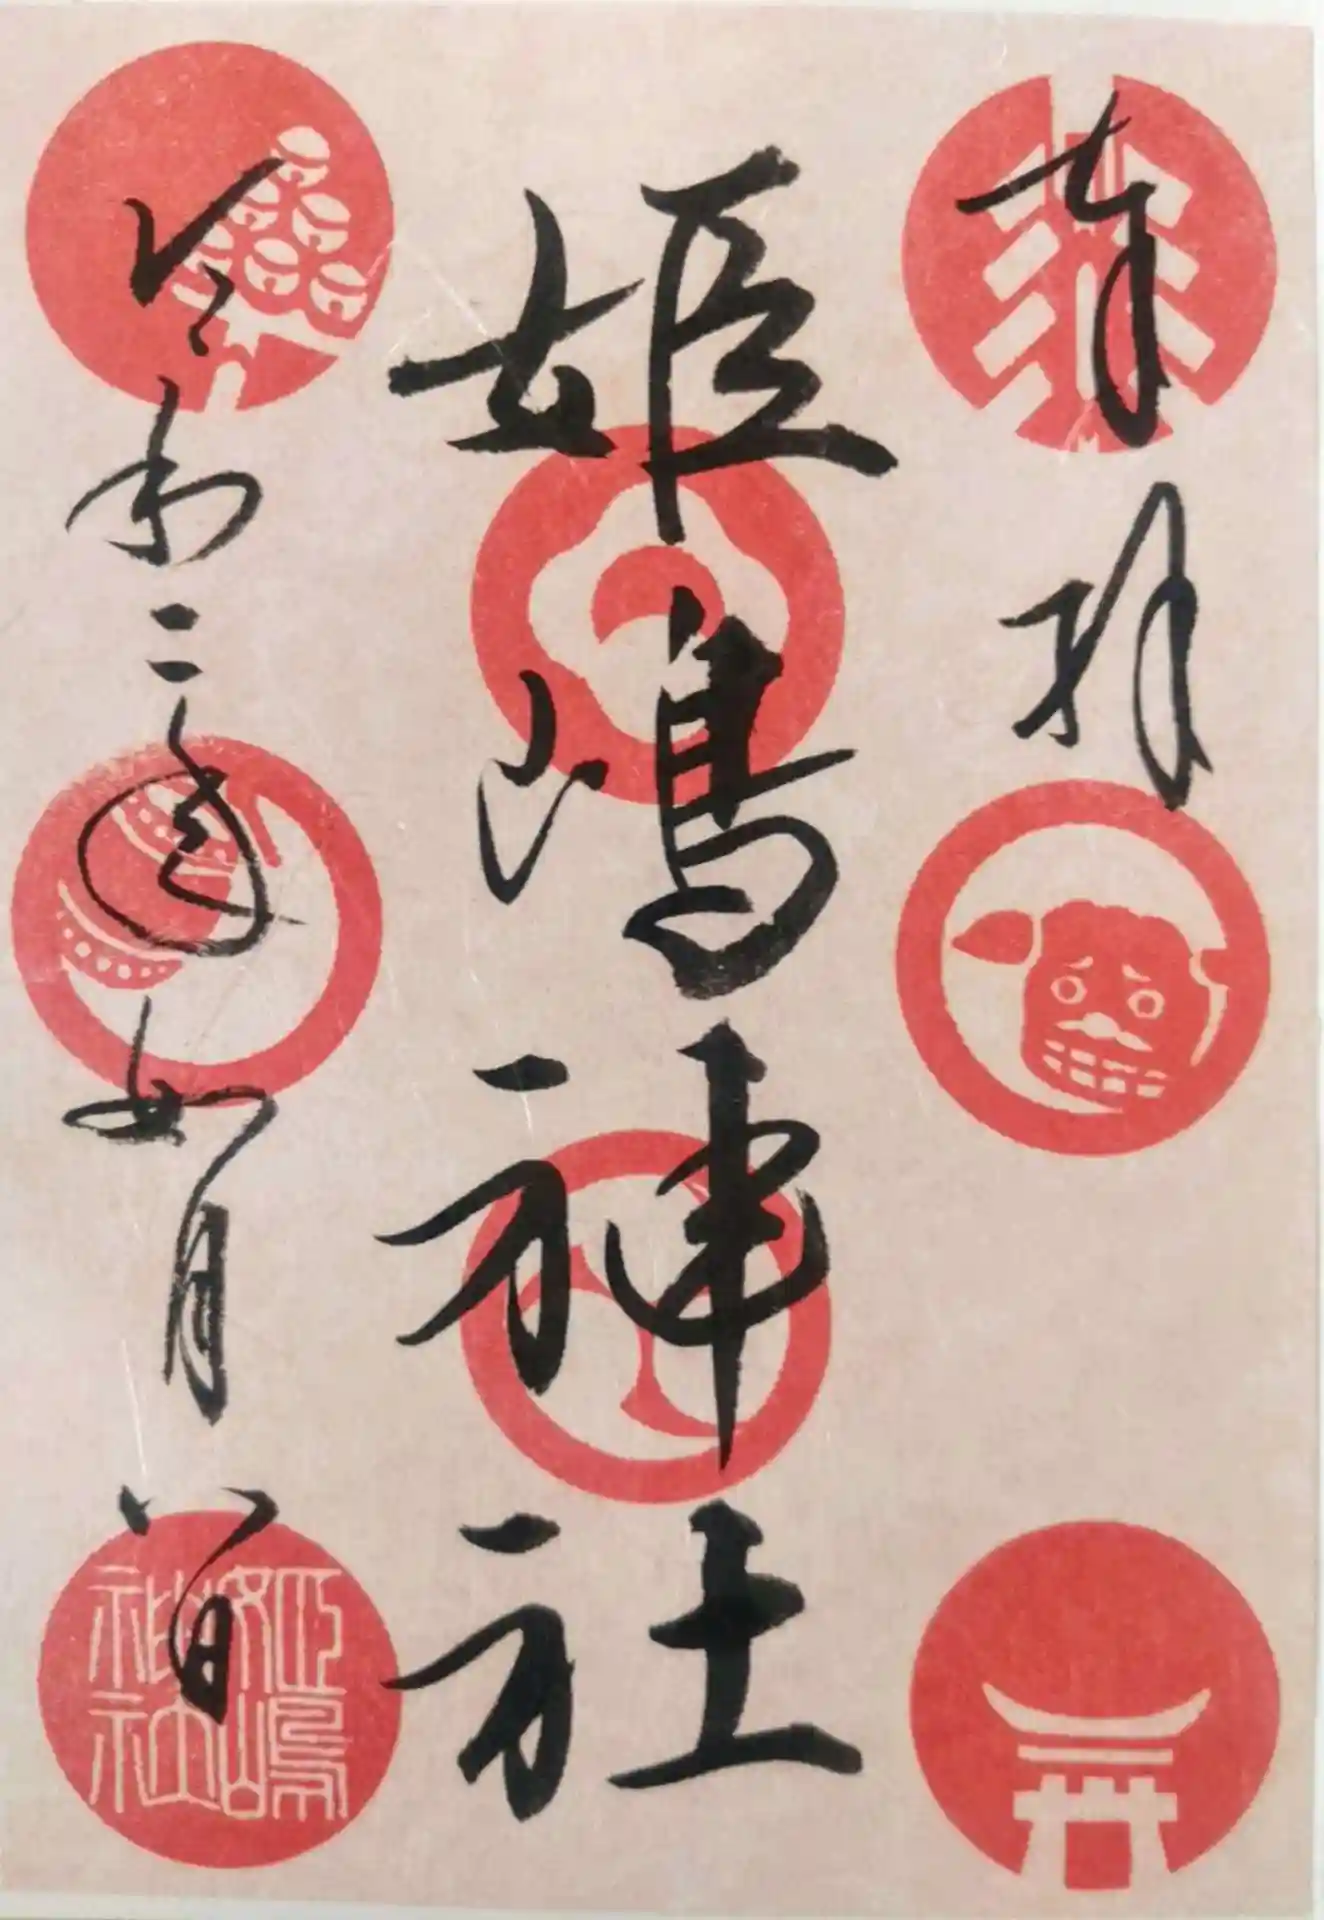 奉拝
姫嶋神社
令和二年如月八日
姫嶋
神社